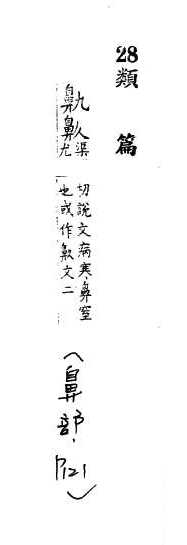 28類篇
鼽
渠
尤
切說文病寒鼻窒
也或作文二
(鼻部.P121)